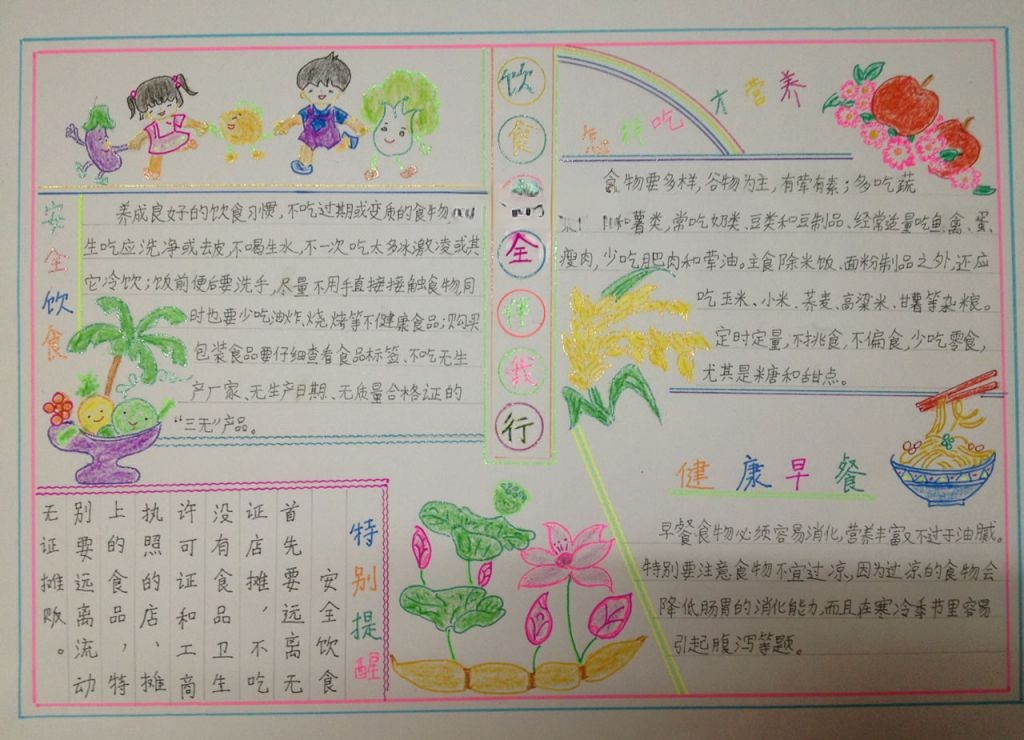 饮食全伴我行
安全饮食
养成良好的饮食习惯,不吃过期或变质的食物
生吃应洗净或去皮,不喝生水,不一次吃太多冰激凌或其
它冷饮;饭前便后要洗手,尽量不用手直接接触食物.同
时也要少吃油炸、烧烤等不健康食品;购买
包装食品要仔细查看食品标签.不吃无生
产厂家、无生产日期、无质量合格证的
“三无”产品。
样吃才营养
食物要多样,谷物为主,有荤有素;多吃蔬
和薯类,常吃奶类、豆类和豆制品、经常适量吃鱼、禽、蛋、
瘦肉,少吃肥肉和荤油。主食除米饭、面粉制品之外,还应
吃玉米、小米、荞麦、高梁米、甘薯等杂粮。
定时定量,不挑食,不偏食,少吃零食,
尤其是米糖和甜点。
特别提醒
安全饮食
首先要远离无
证店摊,不吃
没有食品卫生
许可证和工商
执照的店、摊
上的食品,特
别要远离流动
无证摊败。
健康早餐
早餐食物必须容易消化,营养丰富又不过于油腻。
特别要注意食物不宜过凉,因为过凉的食物会
降低肠胃的消化能力,而且在寒冷季节里容易
引起腹泻等题。